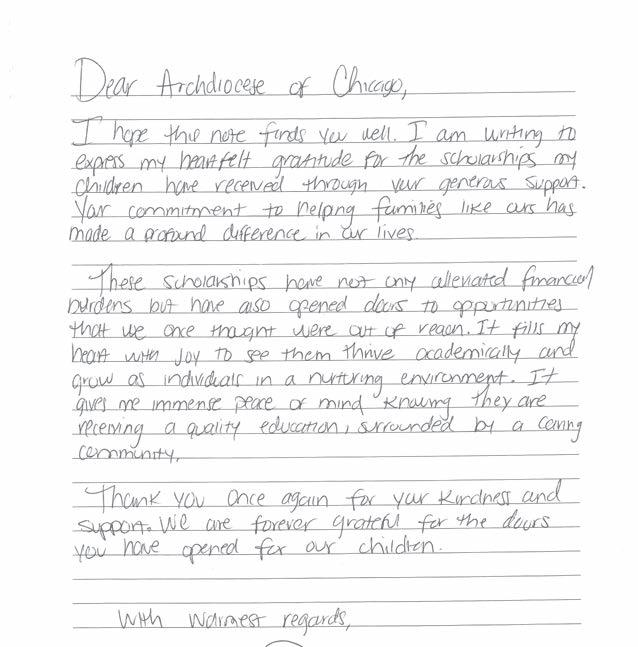 Dear Archdiocese of Chicago,
I hope this note finds you well. I am writing to
express my heartfelt gratitude for the scholarships my
children have received through your generous support.
Your commitment to helping families like ours has
made a profound difference in our lives.
These scholarships have not only alleviated financial
burdens but have also opened doors to opportunities
that we once thought were out of reach. It fills my
heart with joy to see them thrive academically and
grow as individuals in a nurturing environment. It
gives me immense peace of mind knowing they are
receiving a quality education, surrounded by a caring
community.
Thank you once again for your kindness and
support. We are forever grateful for the doors
you have opened for our children.
With warmest regards,